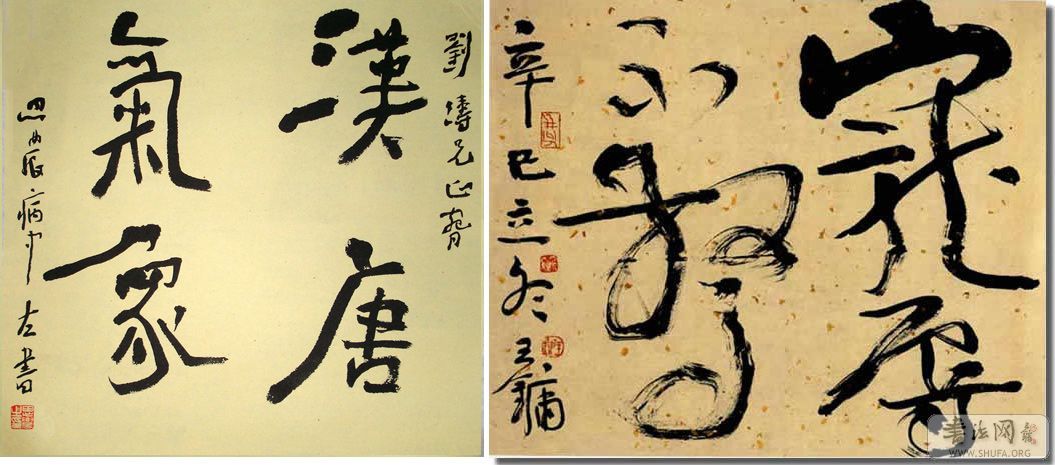 劉濤兄正
漢唐
氣象
病中左書
寵辱
不驚
辛巳立冬王鏞
书法网
WWW.SHUFA.ORG